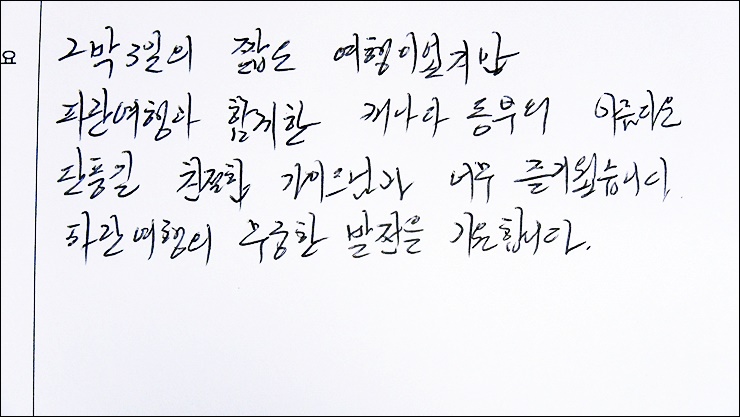 요
2박3일의 짧은 여행이였지만
파란여행과 함께한 캐나다 동부의 아름다운
단풍길 친절한 가이드님과 너무 즐거웠습니다
파란여행의 무궁한 발전을 기원합니다.